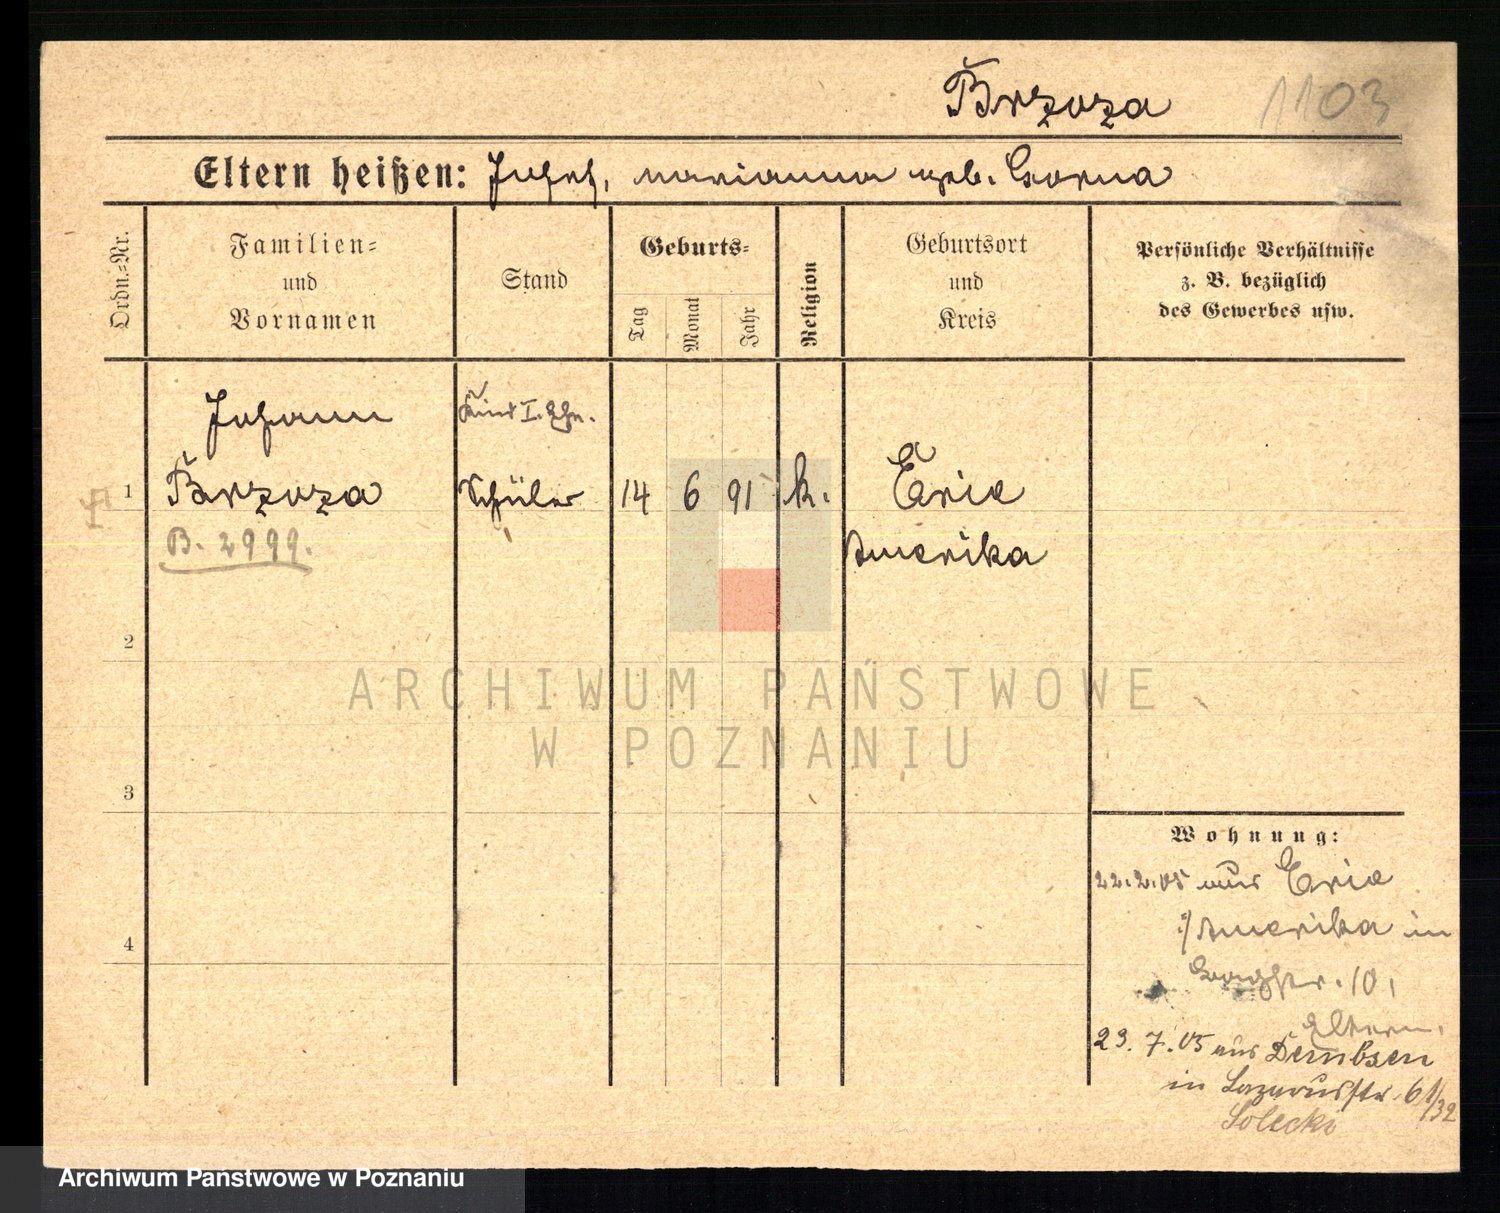 Brzoza 1103
Eltern heißen: Josef, Marianna geb. Gorna
Ordn.-Nr.
Familien-
und
Vornamen
Stand
Geburts-
Tag
Monat
Jahr
Religion
Geburtsort
und
Kreis
Persönliche Verhältnisse
z. B. bezüglich
des Gewerbes usw.
Johann Kind I. Ehe.
1 Brzoza Schüler 14 6 91 k. Erie
B. 2999. Amerika
2
ARCHIWUM PAŃSTWOWE
W POZNANIU
3
Wohnung:
22.2.05 aus Erie
Amerika in
10,
4
Eltern.
23.7.05 aus Dembsen
in Lazarusstr. 61/32
Solecki
Archiwum Państwowe w Poznaniu